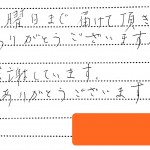 曜日まで届けて頂き
ありがとうございます
感謝しています。
ありがとうございます